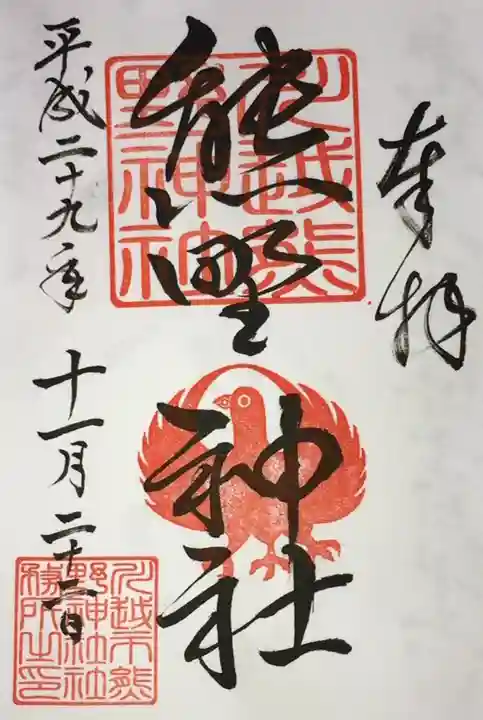 奉拝
熊野神社
川越熊野神社
平成二十九年十一月二十二日
川越市熊野神社社務所之印